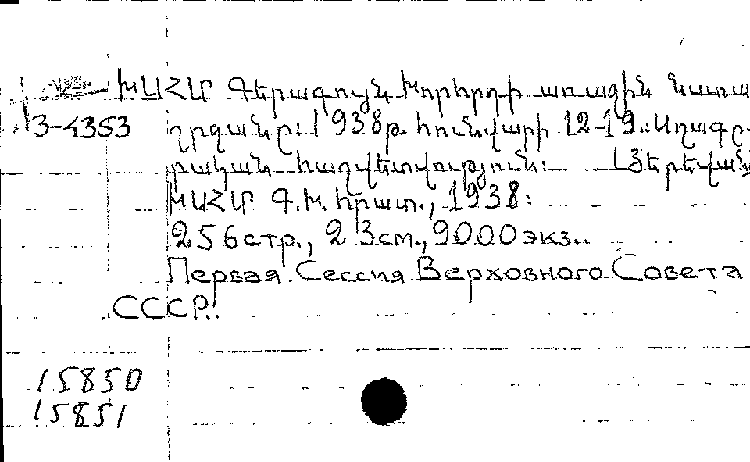 ԽՍՀՄ Գերագույն Խորհրդի առաջին նստա
3-4363 շրջանը: 1938թ. հունվարի 12-19: Սղագր
րական հաշվետվություն: Յերեվան
ԽՍՀՄ Գ.Խ. հրատ., 1938:
256 стр., 23 см., 9000 экз..
Первая Сессия Верховного Совета
СССР.
15850
15851